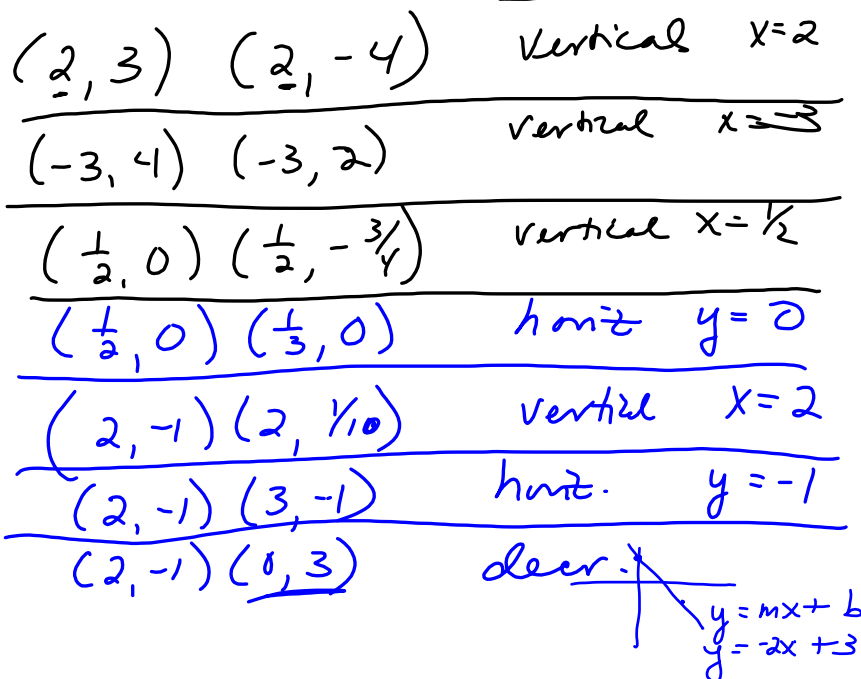 (2, 3) (2, -4) vertical x=2
(-3, 4) (-3, 2) vertical x=-3
(1/2, 0) (1/2, -3/4) vertical x=1/2
(1/2, 0) (1/3, 0) horiz y=0
(2, -1) (2, 1/10) vertical x=2
(2, -1) (3, -1) horiz. y=-1
(2, -1) (0, 3) decr.
y=mx+b
y=-2x+3